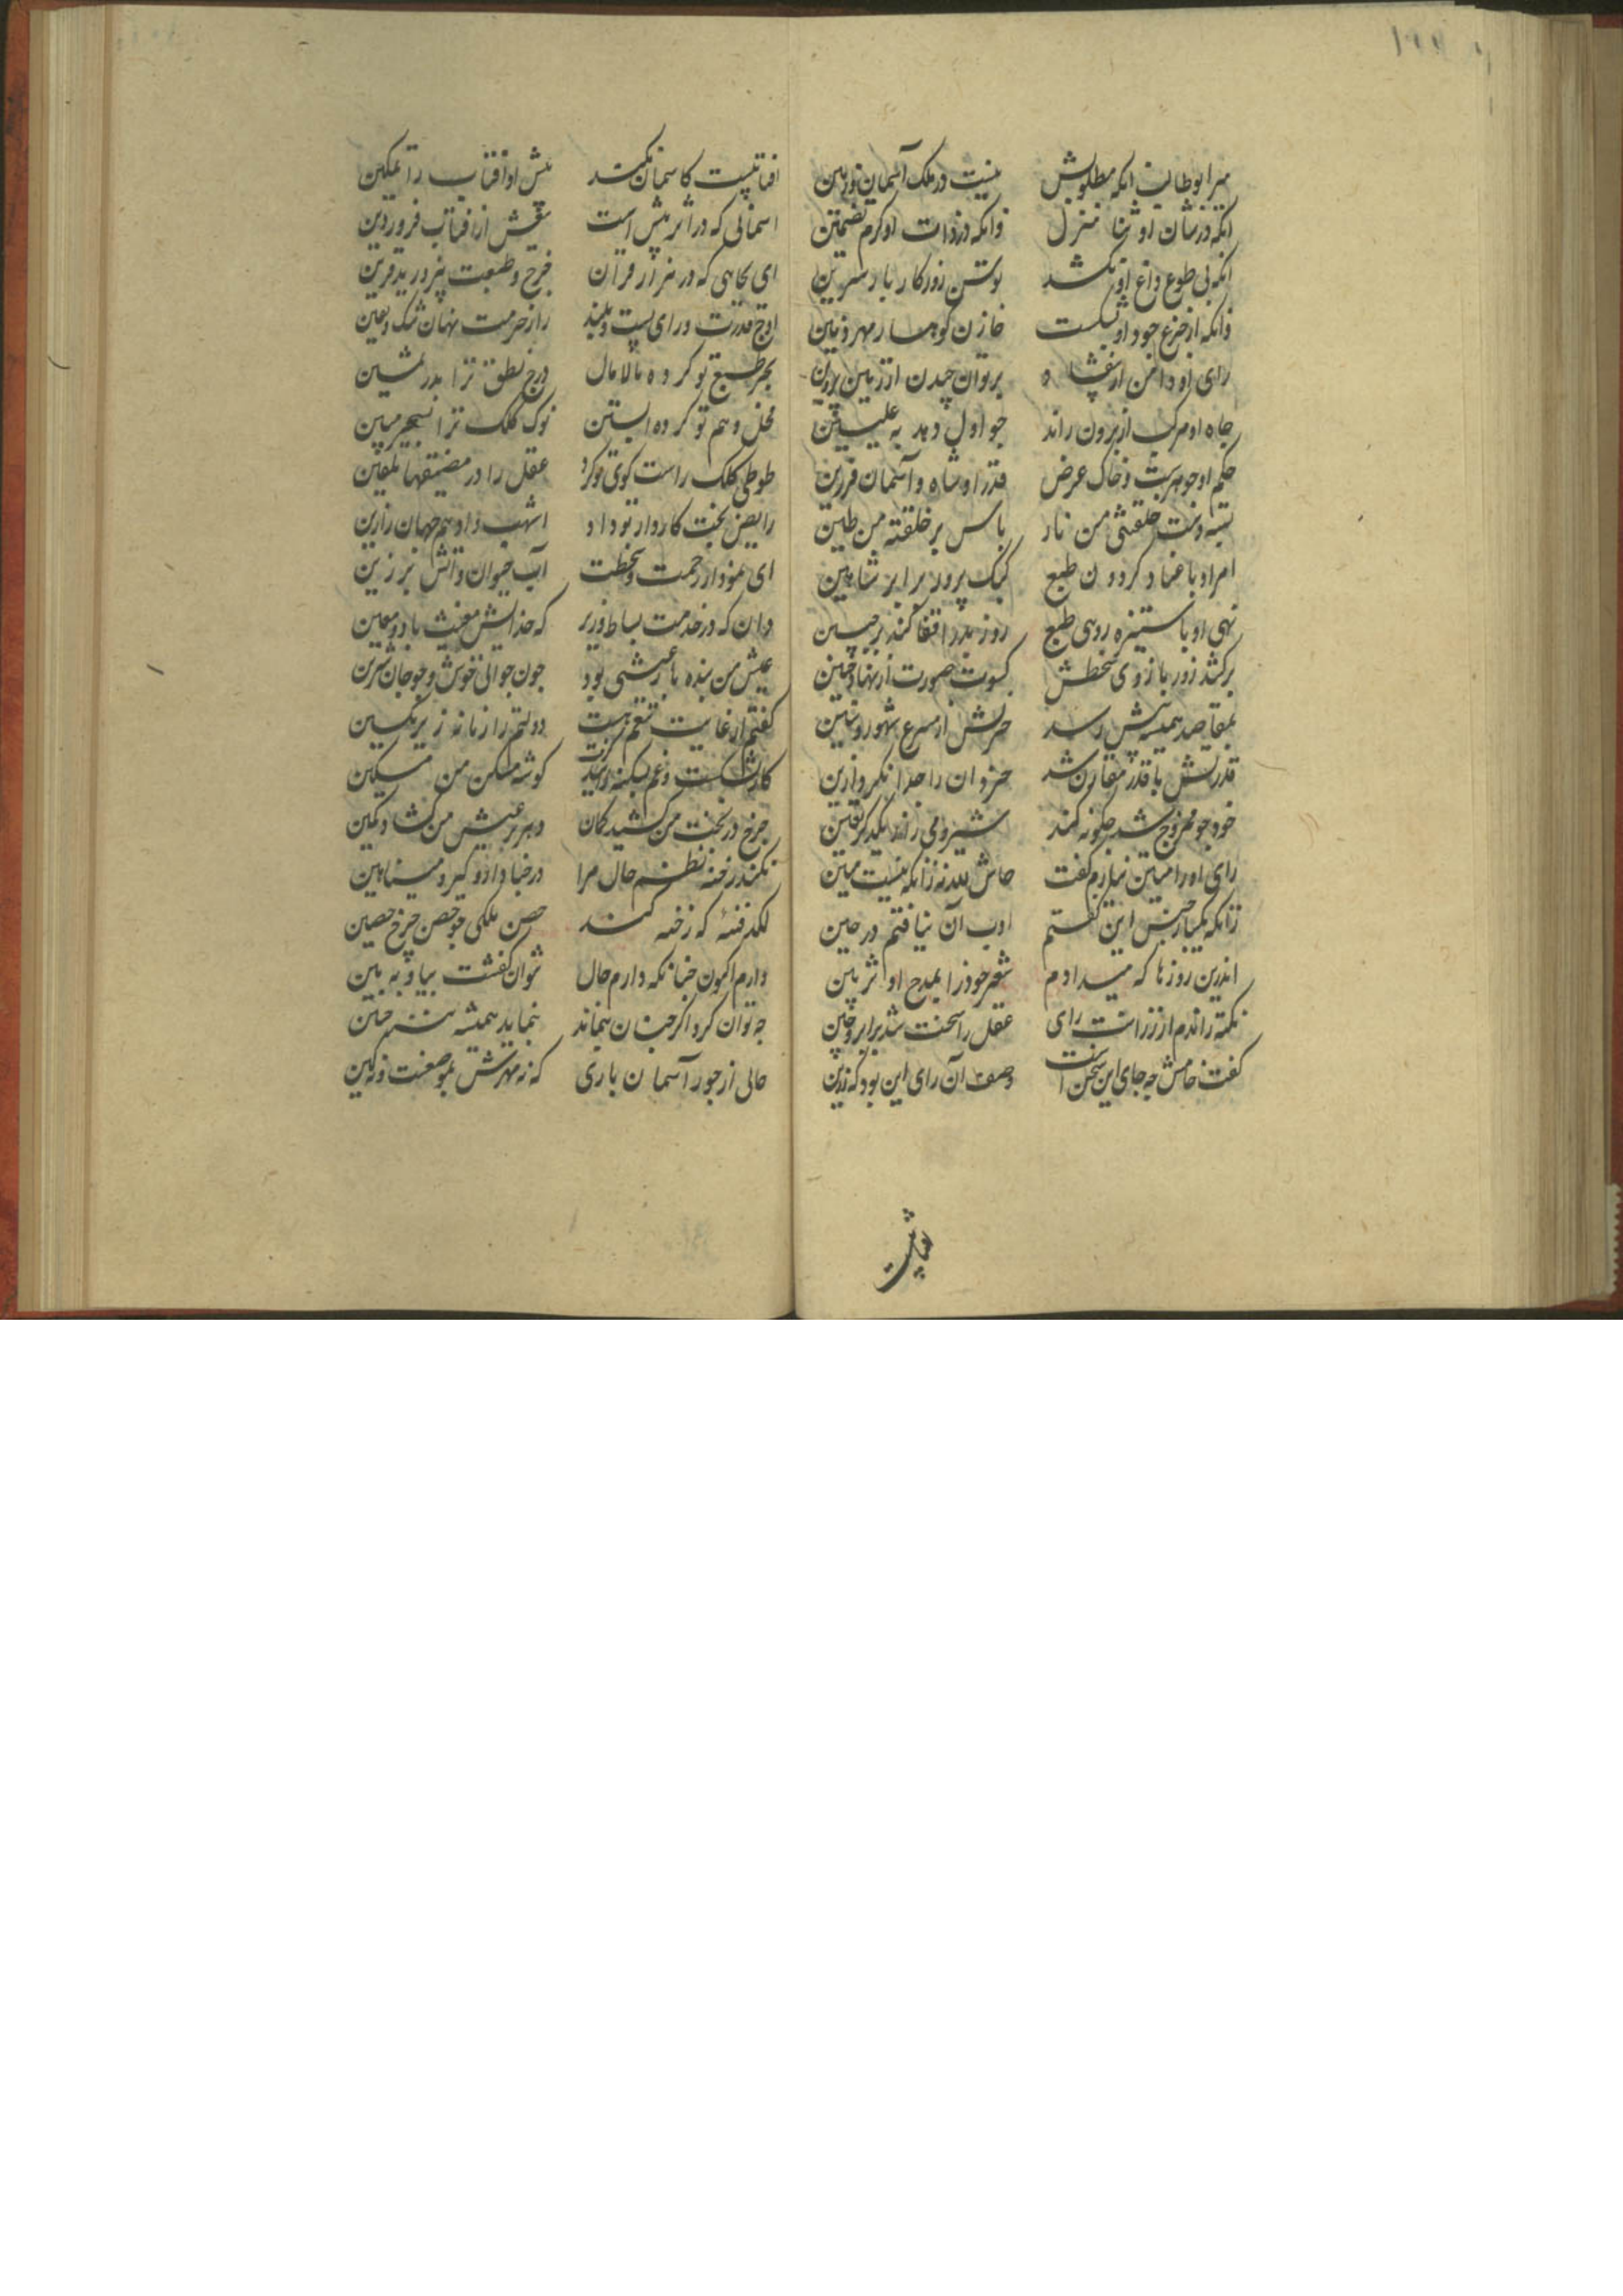 میر ابوطالب انکه مطلوبش نیست در ملک آسمان و زمین
انکه در شان او ثنا منزل وانکه در ذات او کرم تضمین
انکه بی طوع داغ او نکشد توسن روزکار بار سرین
وانکه از خرج جود او نیکست خازن کوهسار مهر دفین
رای او دامن ار بیفشاند بر توان چیدن از زمین پروین
جاه او مرکب از برون راند جو اول دهد به علیین
حکم او جوهرست و خاک عرض قدر او شاه و آسمان فرزین
خلقتنی من نار باس بر خلقته من طین
امر او با عناد کردون طبع کبک پرورد برابر شاهین
نهی او با ستیزه روی طبع روز بد را قفا کند ز جبین
برکشد زور بازوی سخطش کسوت صورت از نهاد جنین
بمقاصد همیشه پیش رسد عزمش از مسرع شهور و سنین
قدرتش با قدر مقارن شد جز و ان را جدا نکرد از این
خود جو ممزوج شد جکونه کند شیر و می را ز یکدکر تعیین
رای او را مبین نیارم کفت حاش لله نه زانکه نیست مبین
زانکه یکبار جنس این کفتم ادب آن نیافتم در حین
اندرین روزها که میدادم شعر خود را بمدح او تزیین
نکته راندم از رزانت رای عقل را سخت شد بر ابرو چین
کفت خامش چه جای این سخن است وصف آن رای این بود که رزین
افتابیست
افتابیست کاسمان نکند پیش او افتاب را تمکین
اسمانی که در اثر بیش است سعیش از افتاب فروردین
ای بجاهی که در هزار قران چرخ و طبعت نپرورید قرین
اوج قدرت ورای پست و بلند راز حزمت نهان ز شک و یقین
بحر طبع تو کرده مالامال درج نطق ترا بدر ثمین
نحل وهم تو کرده ابستن نوک کلک ترا بسحر مبین
طوطی کلک راست کوی تو کرد عقل را در مضیقها تلقین
رایض بخت کاردار تو داد اشهب و ادهم جهان را زین
ای نمودار رحمت و سخطت آب حیوان و آتش برزین
دان که در خدمت بساط وزیر که خدایش مغیث باد و معین
عیش من بنده بد عیشی بود چون جوانی خوش و چو جان شیرین
کفتم از غایت تنعم هست دولتم را زمانه زیر نکین
کار بشکست و غم بکینه کرفت کوشه مسکن من مسکین
چرخ در بخت من کشید کمان دهر بر عیش من کشاد کمین
نکند رخنه نظم حال مرا در جنان دار و کیر و میناهین
لکد فتنه که رخنه کند حصن ملکی چو حصن چرخ حصین
دارم اکنون چنانکه دارم حال نتوان کفت بیا و به بین
چه توان کرد اکر چنان بنماند بنماند همیشه نیز چنین
حالی از جور آسمان باری که نه مهرش بموضعست و نه کین